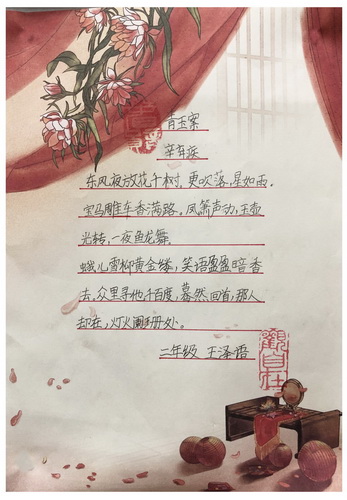 青玉案
辛弃疾
东风夜放花千树,更吹落,星如雨。
宝马雕车香满路。凤箫声动,玉壶
光转,一夜鱼龙舞。
蛾儿雪柳黄金缕,笑语盈盈暗香
去,众里寻他千百度,蓦然,回首,那人
却在,灯火阑珊处。
二年级 王泽语
觀自在